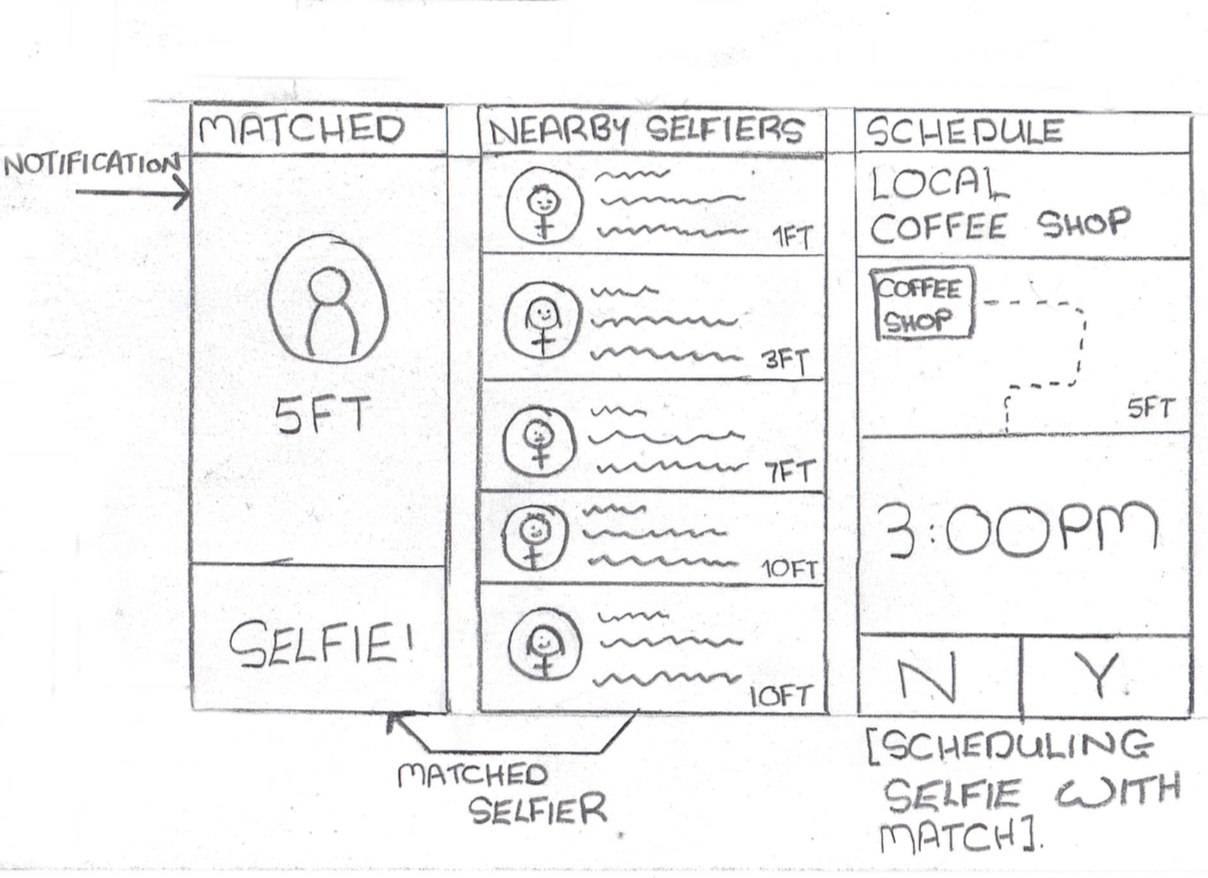 NOTIFICATION
MATCHED
5FT
SELFIE!
NEARBY SELFIERS
1FT
3FT
7FT
10FT
10FT
MATCHED
SELFIER
SCHEDULE
LOCAL
COFFEE SHOP
COFFEE
SHOP
5FT
3:00PM
N
Y
[SCHEDULING
SELFIE WITH
MATCH].